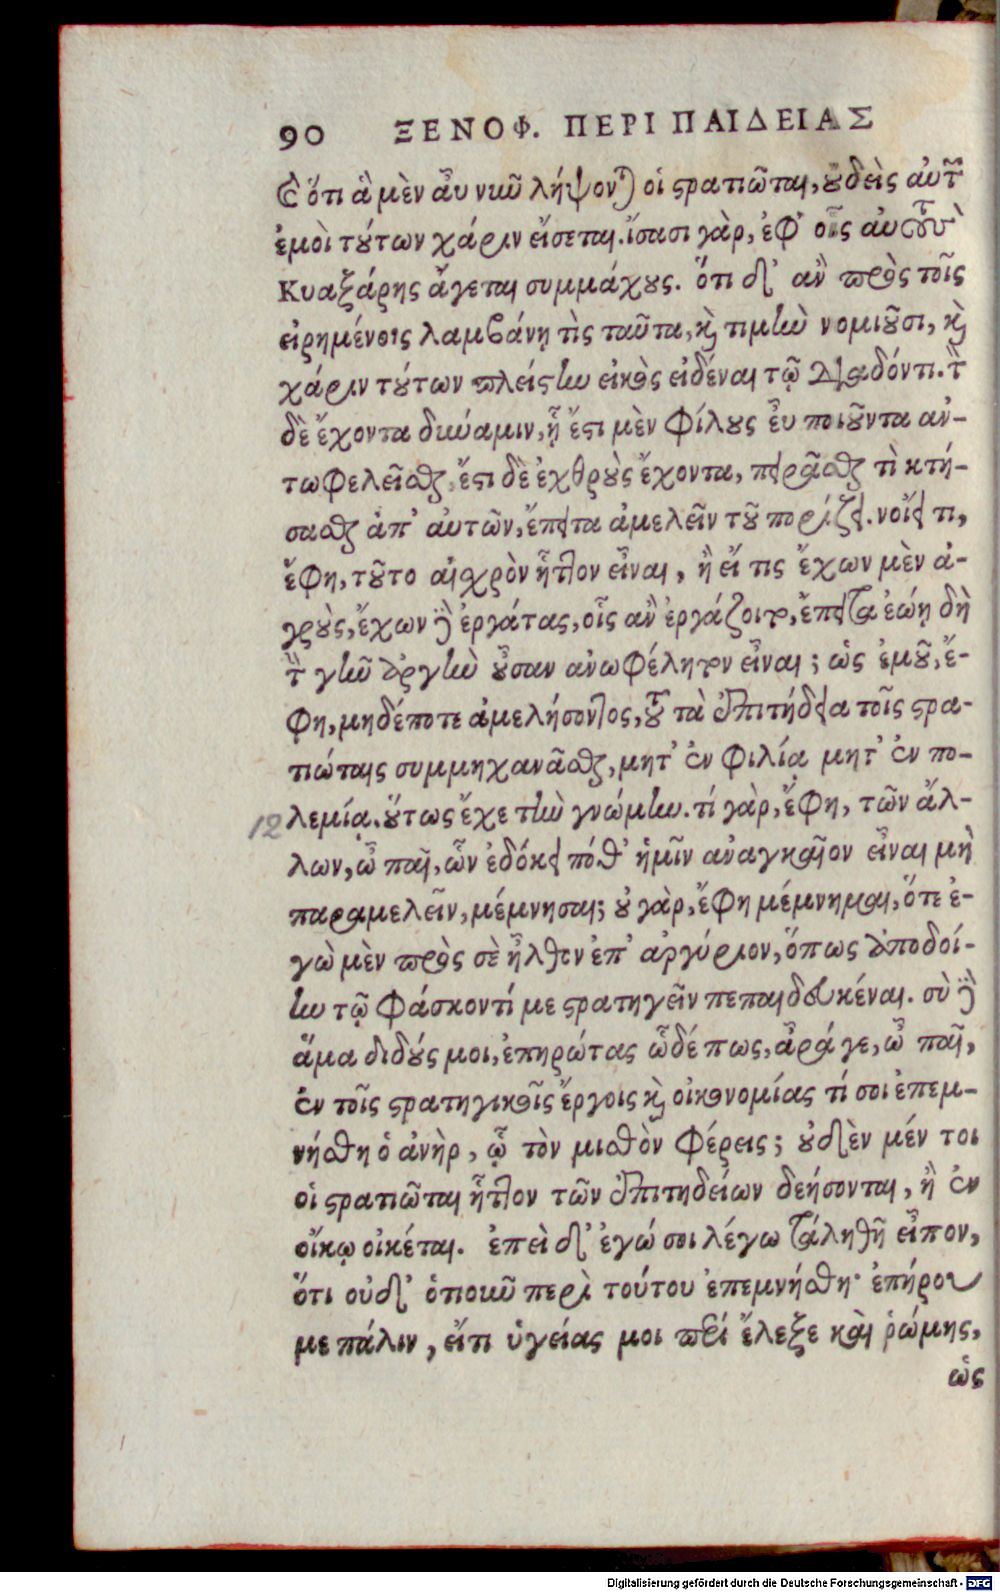 90 ΞΕΝΟΦ. ΠΕΡΙ ΠΑΙΔΕΙΑΣ
ὅτι ἃ μὲν ἂν νῦν λήψονται οἱ στρατιῶται, οὐδεὶς αὐτῶν
ἐμοὶ τούτων χάριν εἴσεται. ἴσασι γὰρ, ἐφ' οἷς αὐτοὺς
Κυαξάρης ἄγεται συμμάχους. ὅτι δ' ἂν πρὸς τοῖς
εἰρημένοις λαμβάνῃ τὶς ταῦτα, καὶ τιμὴν νομιοῦσι, καὶ
χάριν τούτων πλείστην εἰκὸς εἰδέναι τῷ διαδόντι. τὸν
δὲ ἔχοντα δύναμιν, ᾗ ἔστι μὲν φίλους εὖ ποιοῦντα ἀν-
τωφελεῖσθαι, ἔστι δὲ ἐχθροὺς ἔχοντα, πειρᾶσθαι τὶ κτή-
σασθαι ἀπ' αὐτῶν, ἔπειτα ἀμελεῖν τοῦ πορίζειν. νοίει τι,
ἔφη, τοῦτο αἰσχρὸν ἧττον εἶναι, ἢ εἴ τις ἔχων μὲν ἀ-
γροὺς, ἔχων δὲ ἐργάτας, οἷς ἂν ἐργάζοιτο, ἔπειτα ἐῴη δὴ
τὴν γῆν ἀργὴν οὖσαν ἀνωφέλητον εἶναι; ὡς ἐμοῦ, ἔ-
φη, μηδέποτε ἀμελήσοντος, τοῦ τὰ ἐπιτήδεια τοῖς στρα-
τιώταις συμμηχανᾶσθαι, μήτ' ἐν φιλίᾳ μήτ' ἐν πο-
12 λεμίᾳ. οὕτως ἔχε τὴν γνώμην. τί γὰρ, ἔφη, τῶν ἄλ-
λων, ὦ παῖ, ὧν ἐδόκει πόθ' ἡμῖν ἀναγκαῖον εἶναι μὴ
παραμελεῖν, μέμνησαι; οὐ γὰρ, ἔφη μέμνημαι, ὅτε ἐ-
γὼ μὲν πρὸς σὲ ἦλθον ἐπ' ἀργύριον, ὅπως ἀποδοί-
ην τῷ φάσκοντί με στρατηγεῖν πεπαιδευκέναι. σὺ δὲ
ἅμα διδούς μοι, ἐπηρώτας ὧδέ πως, ἆρά γε, ὦ παῖ,
ἐν τοῖς στρατηγικοῖς ἔργοις καὶ οἰκονομίας τί σοι ἐπεμ-
νήσθη ὁ ἀνὴρ, ᾧ τὸν μισθὸν φέρεις; οὐδὲν μέν τοι
οἱ στρατιῶται ἧττον τῶν ἐπιτηδείων δεήσονται, ἢ ἐν
οἴκῳ οἰκέται. ἐπεὶ δ' ἐγώ σοι λέγω τἀληθῆ εἶπον,
ὅτι οὐδ' ὁτιοῦν περὶ τούτου ἐπεμνήσθη· ἐπήρου
με πάλιν, εἴτι ὑγείας μοι περί ἔλεξε καὶ ῥώμης,
ὡς
Digitalisierung gefördert durch die Deutsche Forschungsgemeinschaft - DFG